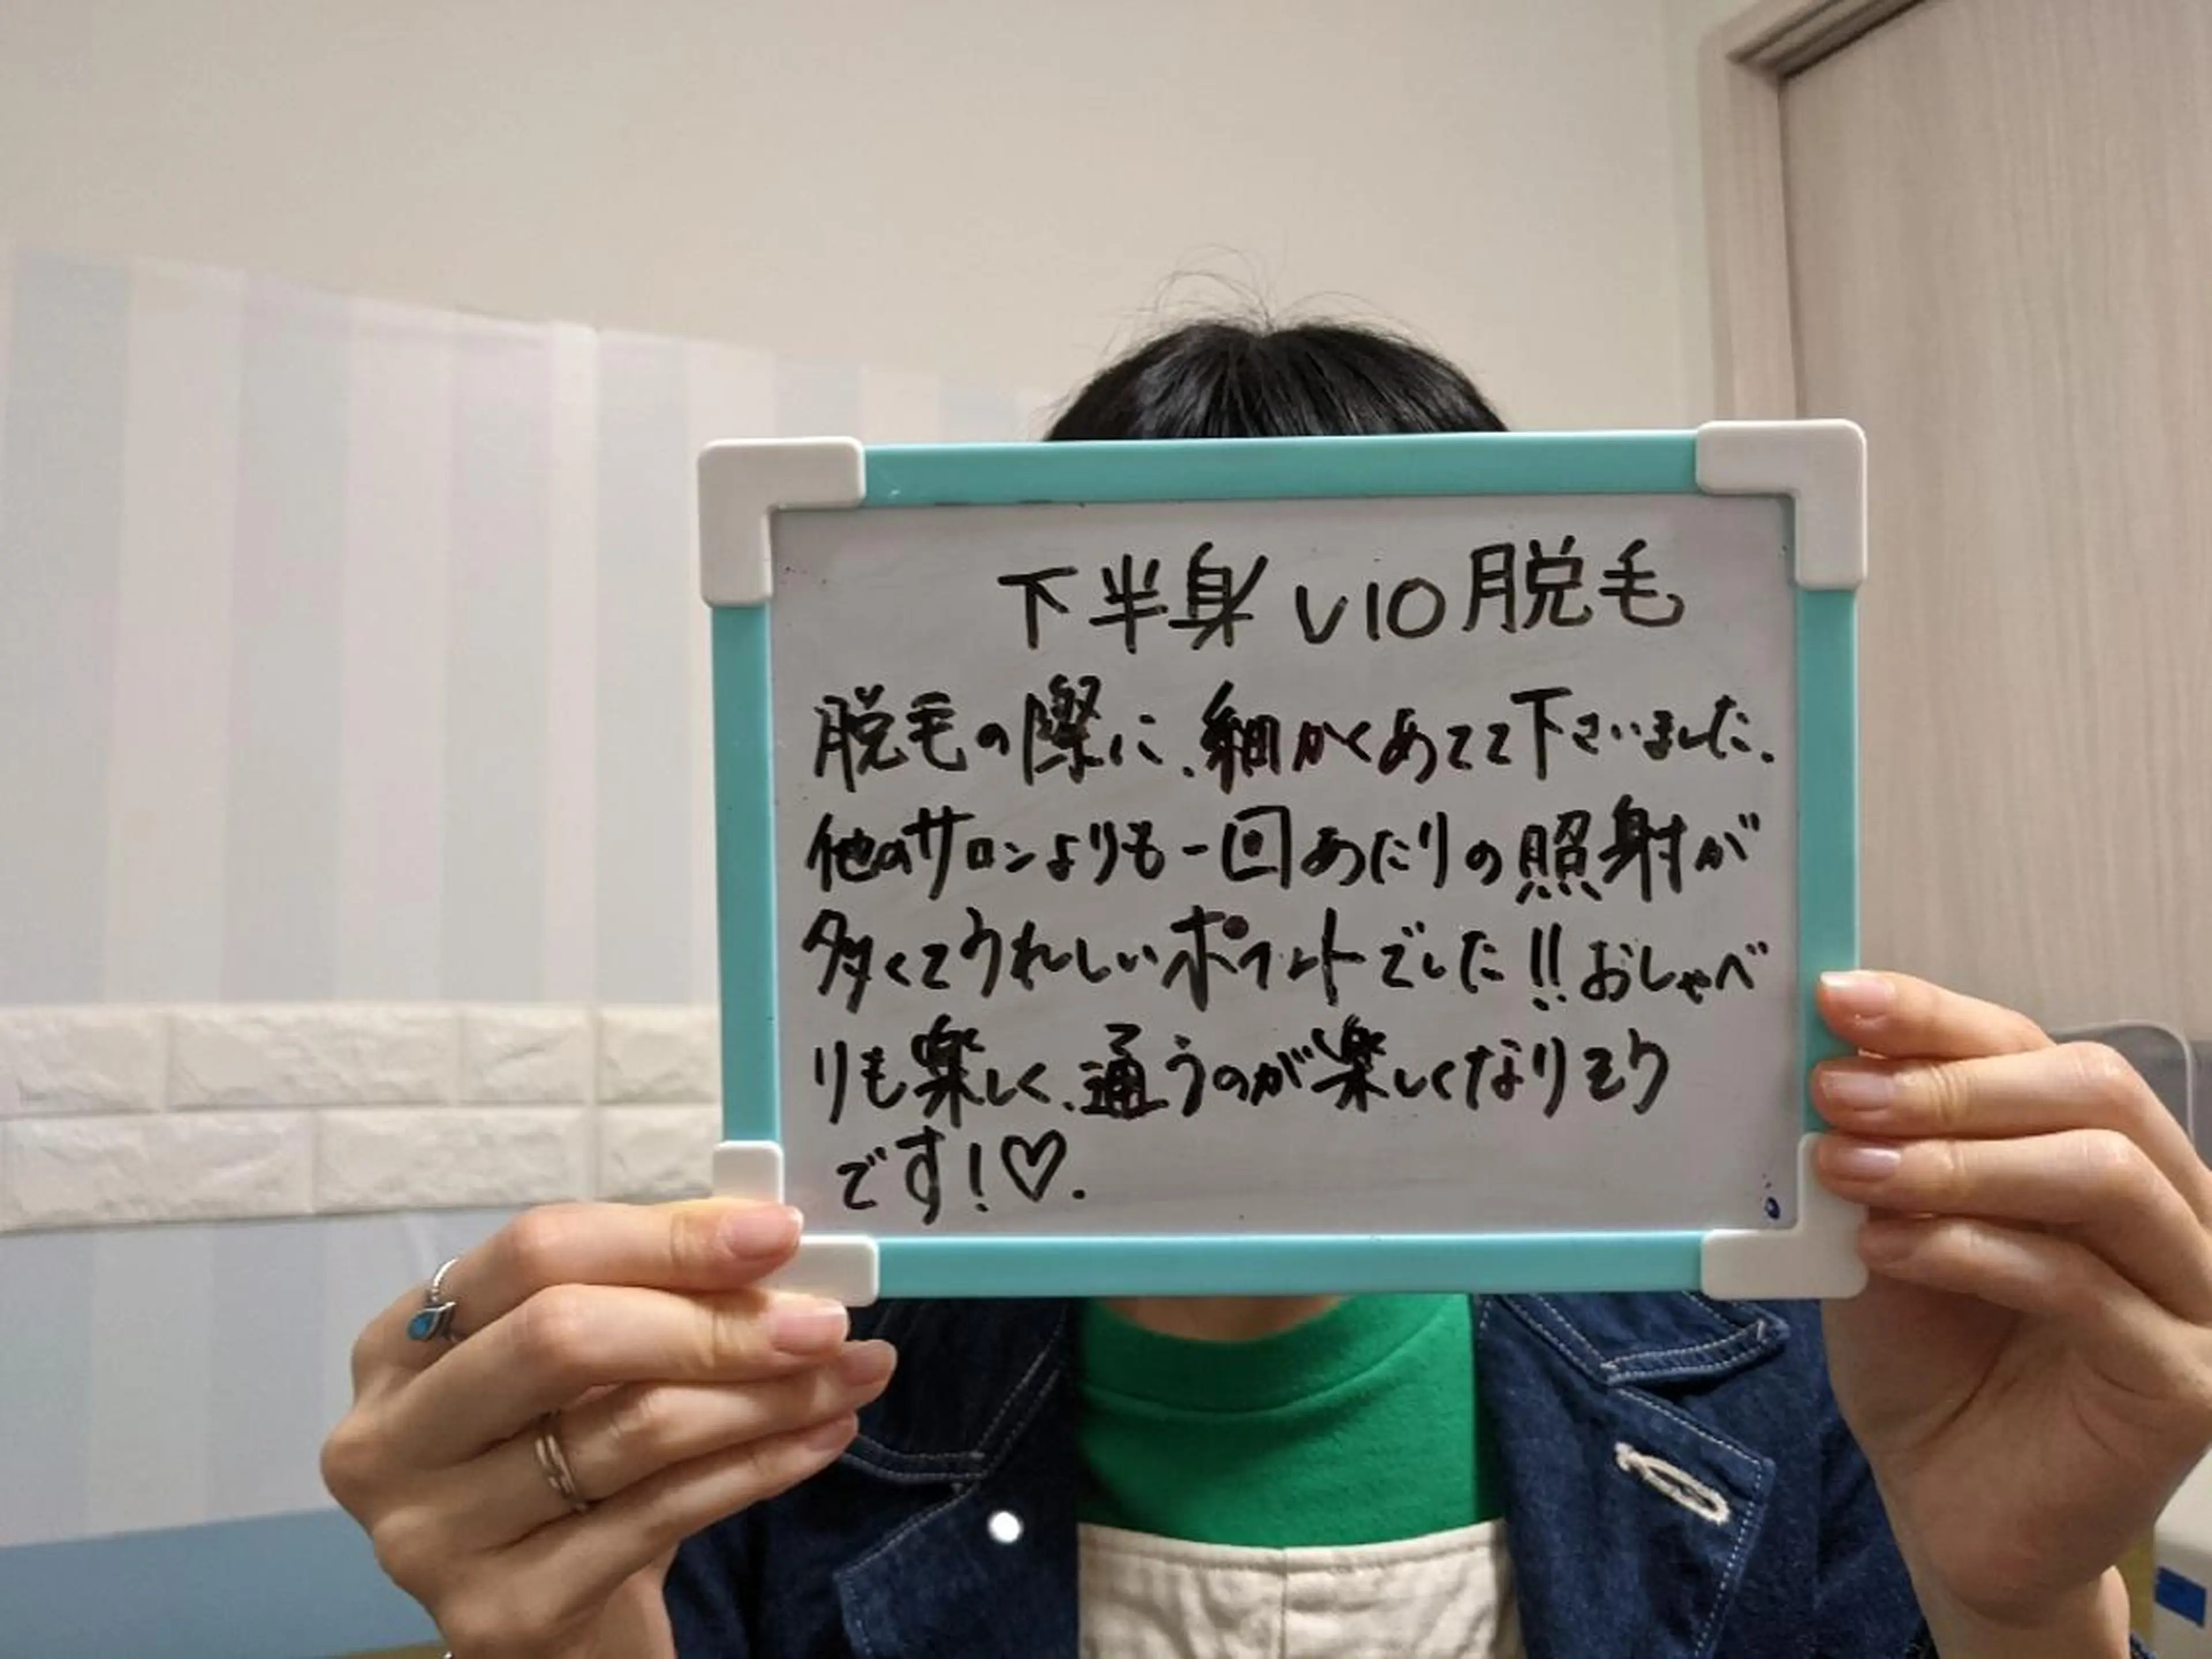 下半身VIO脱毛
脱毛の際に、細かくあてて下さいました。
他のサロンよりも一回あたりの照射が
多くてうれしいポイントでした!!おしゃべ
りも楽しく、通うのが楽しくなりそう
です!♡.